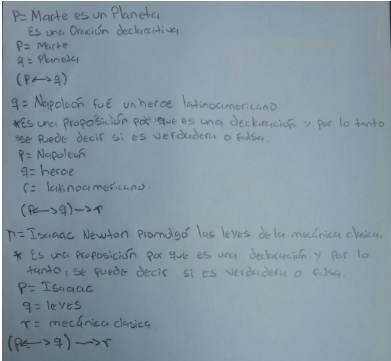 P= Marte es un Planeta
Es una Oración declarativa
P= Marte
q= Planeta
(P<->q)
q= Napoleón fué un heroe latinoamericano.
*Es una Proposición por que es una declaración y por lo tanto
se puede decir si es verdadera o falsa.
P= Napoleón
q= heroe
r= latinoamericano.
(P<->q)->r
r= Isaaac Newton promulgó las leyes de la mecánica clasica.
* Es una proposición por que es una declaración y por lo
tanto, se puede decir si es verdadera o falsa.
P= Isaaac
q= leyes
r= mecánica clasica.
(P<->q)->r